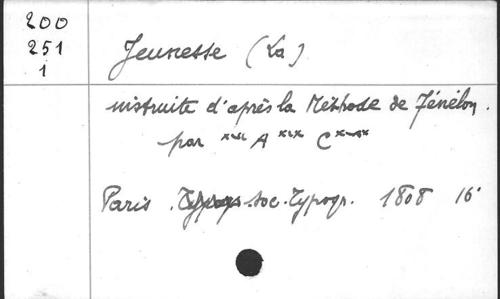 200
251
1
Jeunesse (La)
instruite d'après la Méthode de Fénélon.
par *** A *** C***
Paris. soc. Typogr. 1808 16°